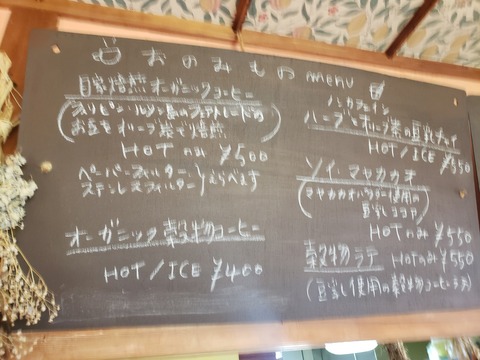 おのみもの menu
自家焙煎 オーガニックコーヒー
(フィリピン・ルソン島のフェアトレードの
お豆をオリーブ薪で焙煎)
HOT のみ ¥500
ペーパーフィルター
ステンレスフィルター えらべます
オーガニック穀物コーヒー
HOT / ICE ¥400
ノンカフェイン
ハーブとオリーブ茶の豆乳チャイ
HOT / ICE ¥550
ソイ・マヤカカオ
(マヤカカオパウダー使用の
豆乳ココア)
HOT のみ ¥550
穀物ラテ HOT のみ ¥550
(豆乳使用の穀物コーヒーラテ)